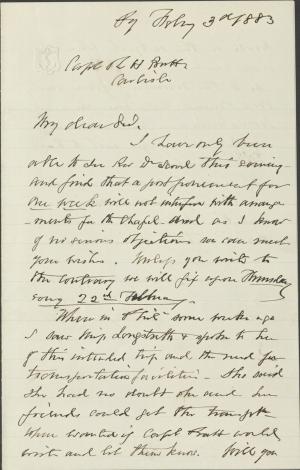 3rd 1883
Capt R H Pratt
Carlisle
My dear Sir,
I have only been
able to see Rev D this evening
and find that a postponement for
one week will not interfere with arrange
ments for the Chapel and as I know
of no serious objections we can meet
your wishes. Unless you write to
the contrary we will fix upon Thursday
evng 22nd February.
When in Phila some weeks ago
I saw Miss Longstreth & spoke to her
of this intended trip and the need for
transportation facilities. She said
she had no doubt she and her
friends could get this
when wanted if Capt Pratt would
write and let them know. Will you